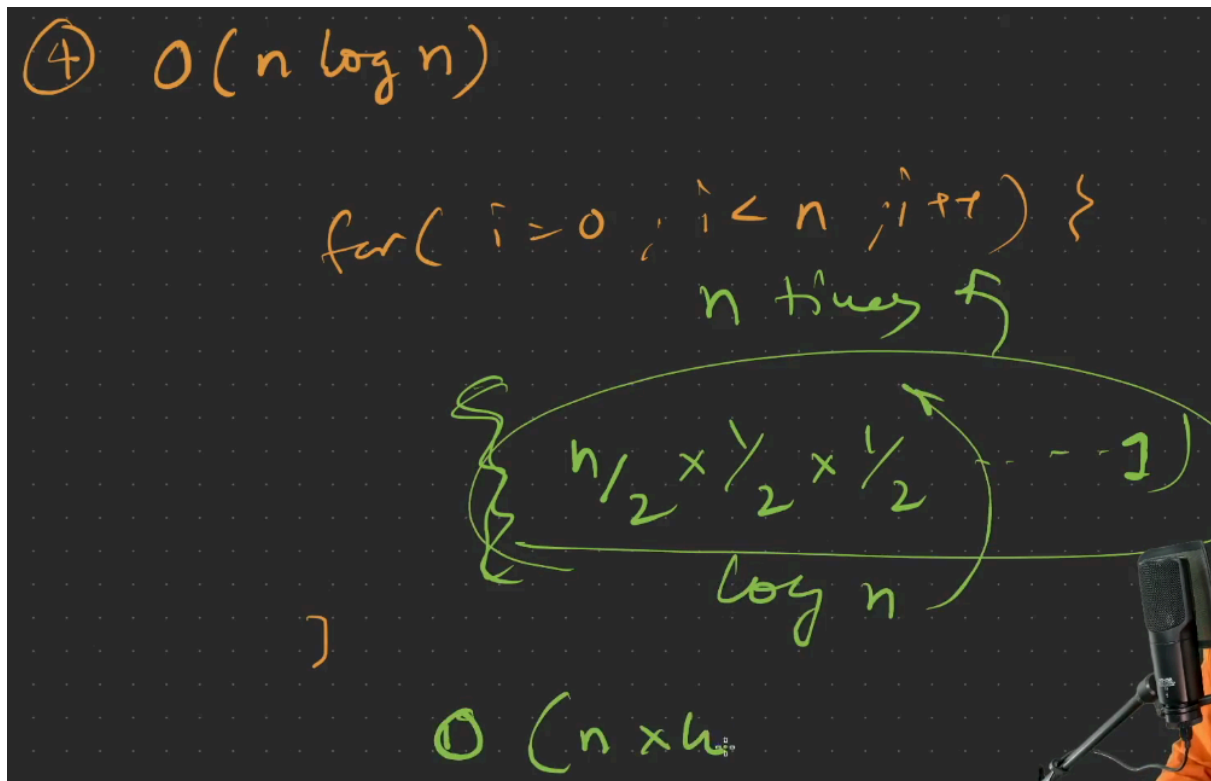 ④ O(n log n)
for( i=0 ; i < n ; i++) {
n times
{ n/2 × 1/2 × 1/2 - - - - 1)
log n
}
O (n ×